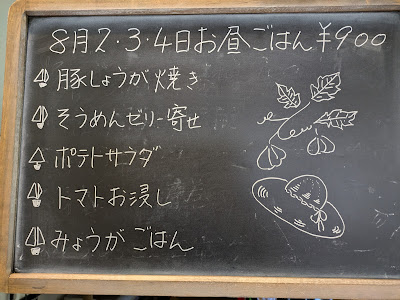 8月2・3・4日お昼ごはん¥900
豚しょうが焼き
そうめんゼリー寄せ
ポテトサラダ
トマトお浸し
みょうがごはん